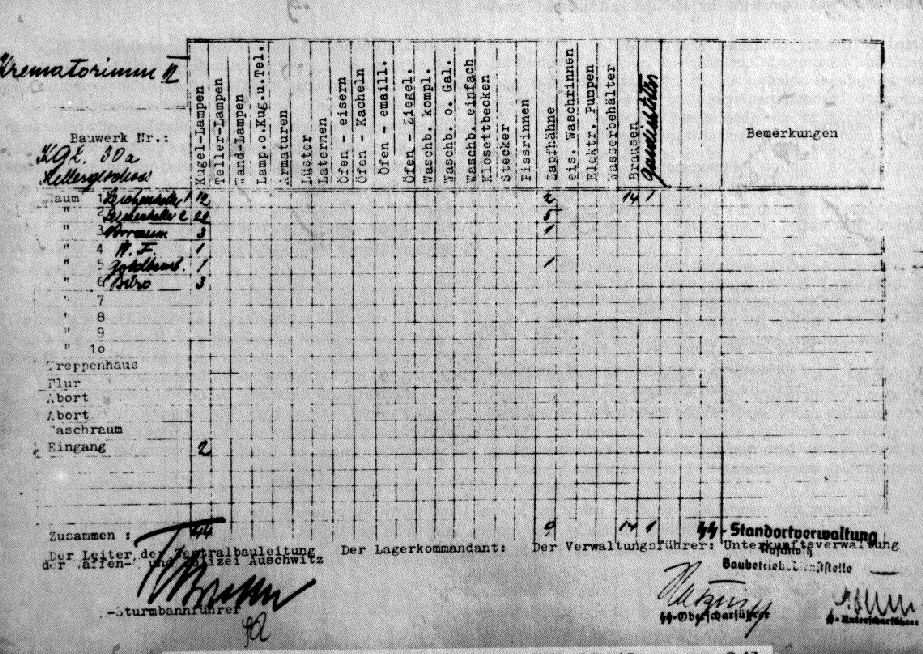 Krematorium
Bauwerk Nr.:
KGL. 30a
Kellergeschoss
Kugel-Lampen
Teller-Lampen
Wand-Lampen
Lamp.o.Kug.u.Tel.
Armaturen
Lüster
Laternen
Öfen - eisern
Öfen - Kacheln
Öfen - emaill.
Öfen - Ziegel.
Waschb. kompl.
Waschb. o. Gal.
Waschb. einfach
Klosettbecken
Stecker
Pissrinnen
Zapfhähne
eis. Waschrinnen
Elektr. Pumpen
Wasserbehälter
Brausen
Bemerkungen
Raum 1 Leichenkeller 1 12 14 1
" 2 Leichenkeller 2
" 3 Vorraum 3 1
" 4 1
" 5 1 1
" 6 Büro 3
" 7
" 8
" 9
" 10
Treppenhaus
Flur
Abort
Abort
Waschraum
Eingang 2
Zusammen : 44 9 14 1
SS-Standortverwaltung
Der Leiter der Zentralbauleitung Der Lagerkommandant: Der Verwaltungsführer: Unterkunftsverwaltung
der Waffen- und Polizei Auschwitz
-Sturmbannführer
SS-Oberscharführer